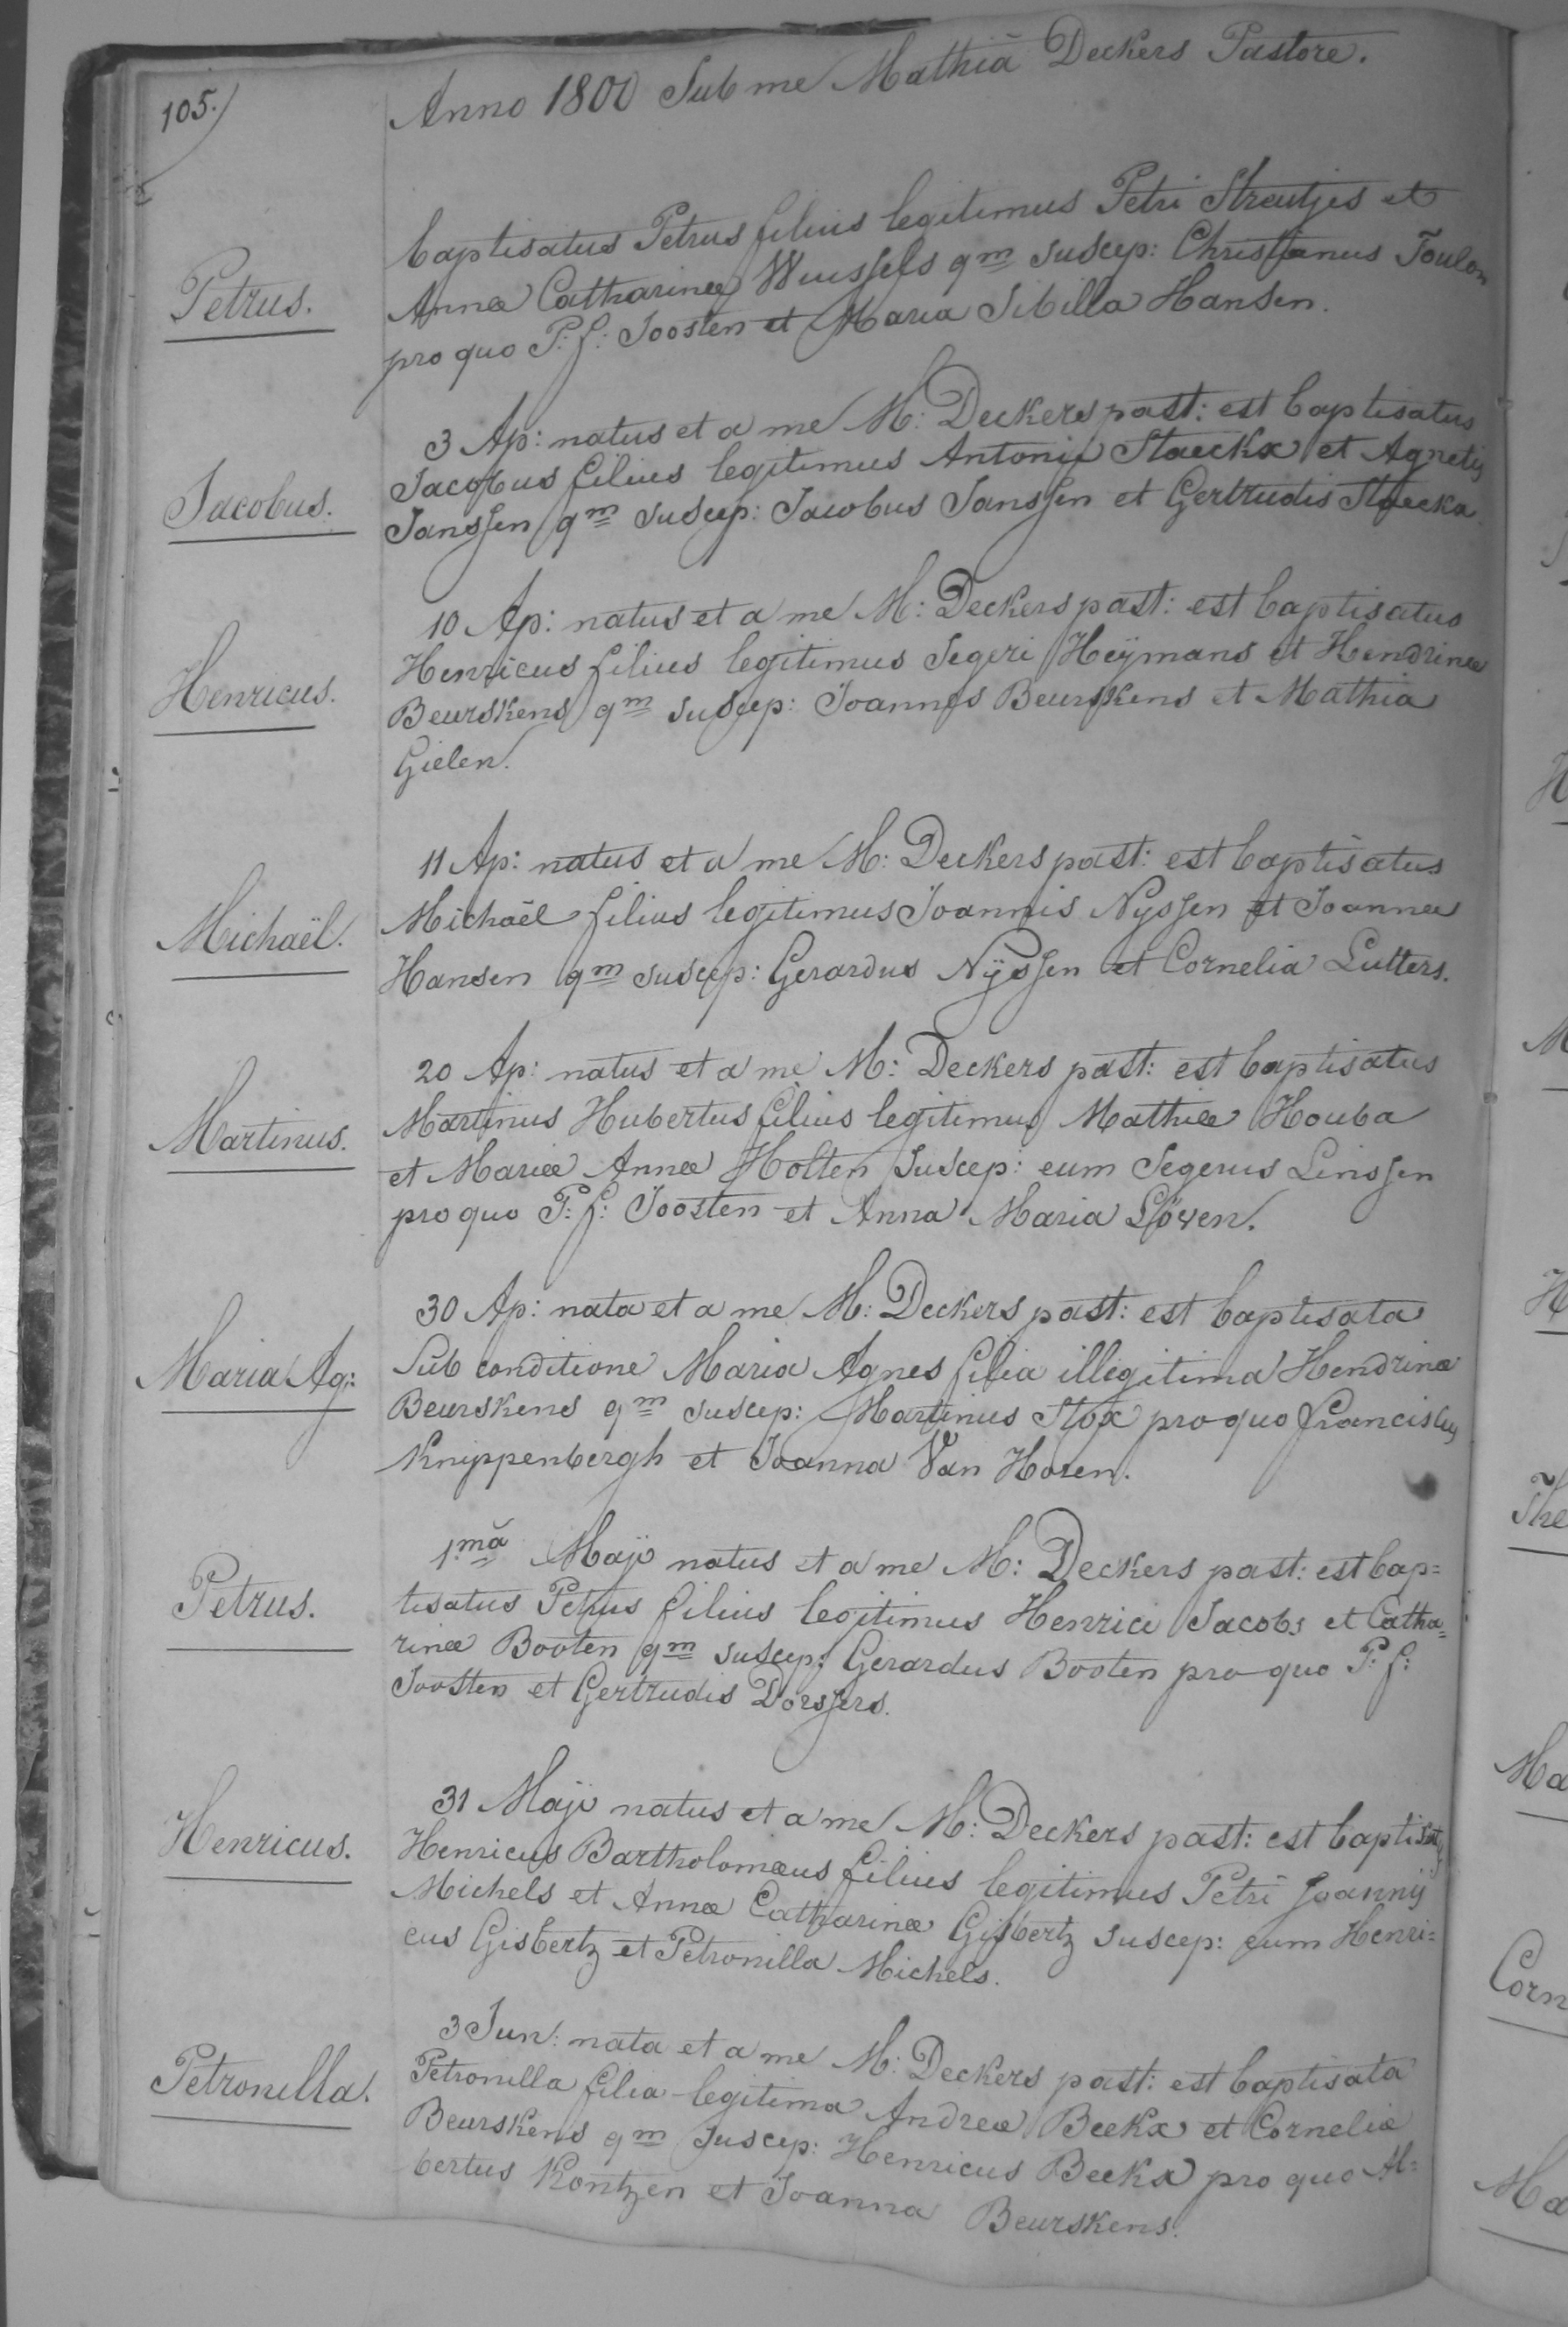 105.
Anno 1800 Sub me Mathiâ Deckers Pastore.
Petrus.
baptisatus Petrus filius legitimus Petri Streutjes et
Annæ Catharinæ Wuissels qm suscep: Christianus Toulon
pro quo P: f: Joosten et Maria Sibilla Hansen.
Jacobus.
3 Ap: natus et a me M: Deckers past: est baptisatus
Jacobus filius legitimus Antonii Staeckx et Agnetis
Janssen qm suscep: Jacobus Janssen et Gertrudis Staeckx.
Henricus.
10 Ap: natus et a me M: Deckers past: est baptisatus
Henricus filius legitimus Segeri Heÿmans et Hendrinæ
Beurskens qm suscep: Joannes Beurskens et Mathia
Gielen.
Michaël.
11 Ap: natus et a me M: Deckers past: est baptisatus
Michaël filius legitimus Joannis Nyssen et Joannæ
Hansen qm suscep: Gerardus Nÿssen et Cornelia Lutters.
Martinus.
20 Ap: natus et a me M: Deckers past: est baptisatus
Martinus Hubertus filius legitimus Mathiæ Houba
et Mariæ Annæ Holten suscep: eum Segerus Linssen
pro quo P: f: Joosten et Anna Maria
Maria Ag:
30 Ap: nata et a me M: Deckers past: est baptisata
Sub conditione Maria Agnes filia illegitima Hendrinæ
Beurskens qm suscep: Martinus Stox pro quo franciscus
Knyppenbergh et Joanna Van Horen.
Petrus.
1.mâ Maji natus et a me M: Deckers past: est bap=
tisatus Petrus filius legitimus Henrici Jacobs et Catha=
rinæ Booten qm suscep: Gerardus Booten pro quo P: f:
Joosten et Gertrudis Dorssers.
Henricus.
31 Maji natus et a me M: Deckers past: est baptisatus
Henricus Bartholomæus filius legitimus Petri Joannis
Michels et Annæ Catharinæ Gisbertz suscep: eum Henri=
cus Gisbertz et Petronilla Michels.
Petronilla.
3 Jun: nata et a me M: Deckers past: est baptisata
Petronilla filia legitima Andreæ Beekx et Corneliæ
Beurskens qm suscep: Henricus Beekx pro quo Al=
bertus Kontzen et Joanna Beurskens.